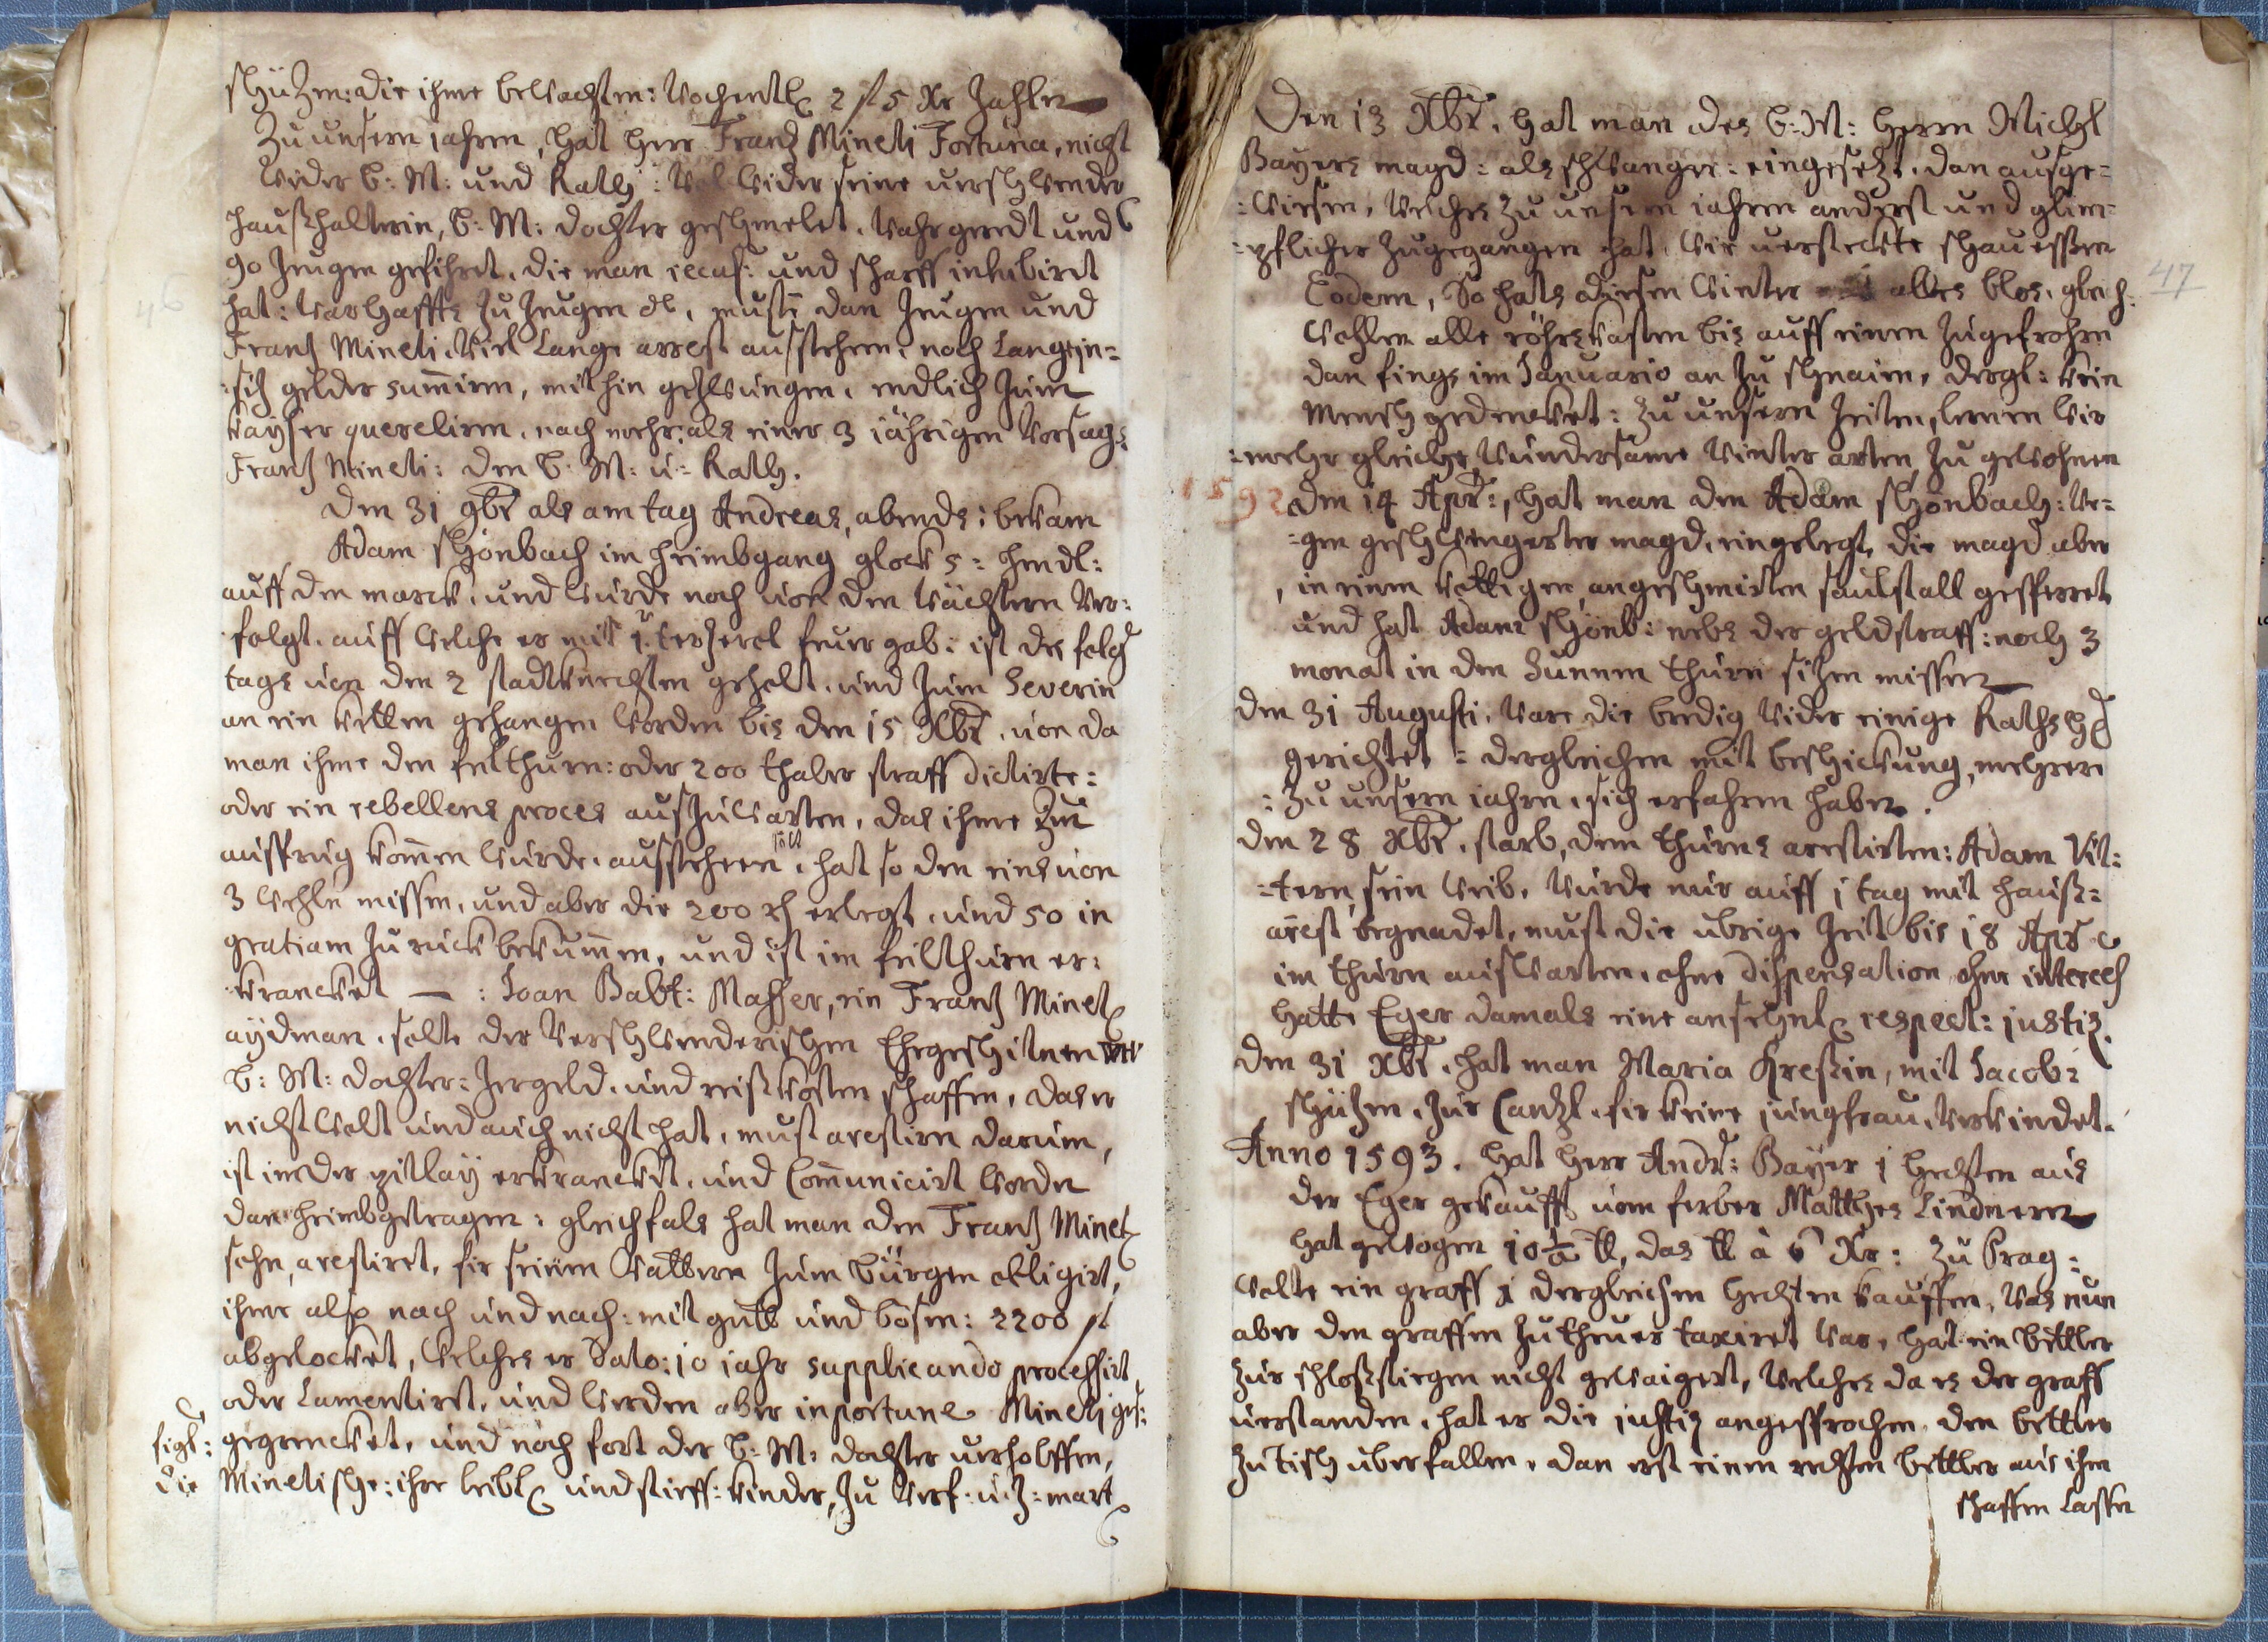 schüzen: die ihme bewachten: wochentl 2 fl 5 Xr zahlen
Zu unsern iahren, hat herr Franz Mineti Fortuna, nicht
wider B: M: und Rath: wol wider seine verschwender
haußhalterin, B: M: dochter geschmelet, wahr geredt und
90 zeugen gefihret, die man recus: und scharff inhibiret
hat: warhaffts zu zeugen dl, muste dan zeugen und
Franz Mineti, viel lange arrest außstehen, noch
gelder summiren, mithin gezwungen, endlich zum
kayser querelirn, nach mehr: als einer 3 iährigen
Franz Mineti: den B: M: u: Rath.
Den 31 9br als am tag Andreas, abends: bekam
Adam schönbach im heimbgang glock 5: hendl:
auff den marck, und wurde noch von den wächtern ver:
folgt, auff welche er mit 1 terzerol feur gab: ist des folg
tags von den 2 stadtknechten geholt, und zum Severin
an ein ketten gehangen worden bis den 15 Xbr, von da
man ihme den feilthurn: oder 200 thaler straff dictirte:
oder ein rebellens proces außzuwarten, das ihme zue
kommen wurde, ausstehen solt, hat so den eins von
3 wehlen missen, und aber die 200 rh erlegt, und 50 in
gratiam zuruck bekummen, und ist im feilthurn er:
krancket — : Joan Babt: Masser, ein Franz Minet
aydman, solte der verschwenderischen Ehegeschitnen
B: M: dochter: zergeld, und reißkosten schaffen, das er
nicht wolt und auch nicht hat, must arestirn darum,
ist in der pitlay erkrancket, und Communicirt worden
dan heimbgetragen: gleichfals hat man den Franz Minet
sohn, arestiret, fir seinem vattern zum bürgen obligirt,
ihme also nach und nach: mit gutt und bösen: 2200 fl
abgelocket, welches er Dato: 10 iahr supplicando processirt
oder Lamentiret, und werden aber inportune Mineti
figl: gegrencket, und noch fort der B: M: dochter verholffen,
die Minetische: ihre leibl und stieff: kinder, zu verf: u: z: mart
Den 13 Xbr, hat man des B: M: herrn Michl
Bayers magd: als schwanger: eingesetzt, dan ausge=
=wisen, welches zu unsern iahren anderst und glim=
=pflicher zugegangen hat, wie versteckte schauessen
Eodem, So hats diesen winter alles blos, gleich:
wohlen alle röhrkasten bis auff einen zugefrohrn
dan fings im Januario an zu schnaien, dergl: kein
Mensch gedencket: zu unsern zeiten, lernen wir
=mehr gleiche wundersame winter arten, zu gewohnen
1592 den 14 Apr:, hat man den Adam schönbach: we=
=gen geschwengerter magd, eingelegt, die magd aber
, in einem kottigen, angeschmirten saustall gesperret
und hat Adam schönb: nebs der geldstraff: noch 3
monat in den Hunnen thurn sitzen missen
den 31 Augusti, ware die bredig wider einige Rathsh
gerichtet = dergleichen mit beschickung, mehrere
: zu unsern iahren, sich erfahren haben.
den 28 Xbr, starb, dem thurns arestirten: Adam Vit:
=tern, sein weib, wurde nur auff 1 tag mit hauß=
arest begnadet, must die ubrige zeit bis 18 Apr
im thurn außwarten, ohne dispensation, ohne
hatte Eger damals eine ansehnl respect: justiz.
den 31 Xbr, hat man Maria Krestin, mit Jacob:
schüzen, zur Canzl, fir keine jungfrau, verkindet.
Anno 1593. hat herr Andr: Bayer 1 hechten aus
der Eger gekaufft vom ferber Matthes Lindnern
hat gewogen 10½ ℔, das ℔ à 6 Xr: zu Prag:
wolte ein graff 1 dergleichen hechten kauffen, was nun
aber den graffen zu theuer taxiret war, hat ein bettler
zur schloßstiegen nicht gewaigert, welches da es der graff
verstanden, hat er die justiz angesprochen, den bettler
zu tisch uberfallen, dan erst einen rechten bettler aus ihm
schaffen lassen
47